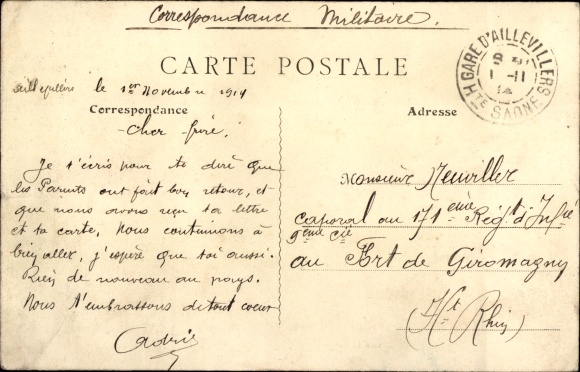 Correspondance Militaire.
GARE D'AILLEVILLERS
1-11
14
HTE SAÔNE
CARTE POSTALE
Aillevillers le 1er Novembre 1914
Correspondance
Adresse
Cher frère.
Je t'écris pour te dire que
les Parents ont fait bon retour, et
que nous avons reçu ta lettre
et ta carte, Nous continuons à
bien aller, j'espère que toi aussi.
Rien de nouveau au pays.
Nous t'embrassons de tout coeur
Monsieur Neuviller
caporal au 171ème Régt d'Infie
9ème Cie
au Fort de Giromagny
(Ht Rhin)